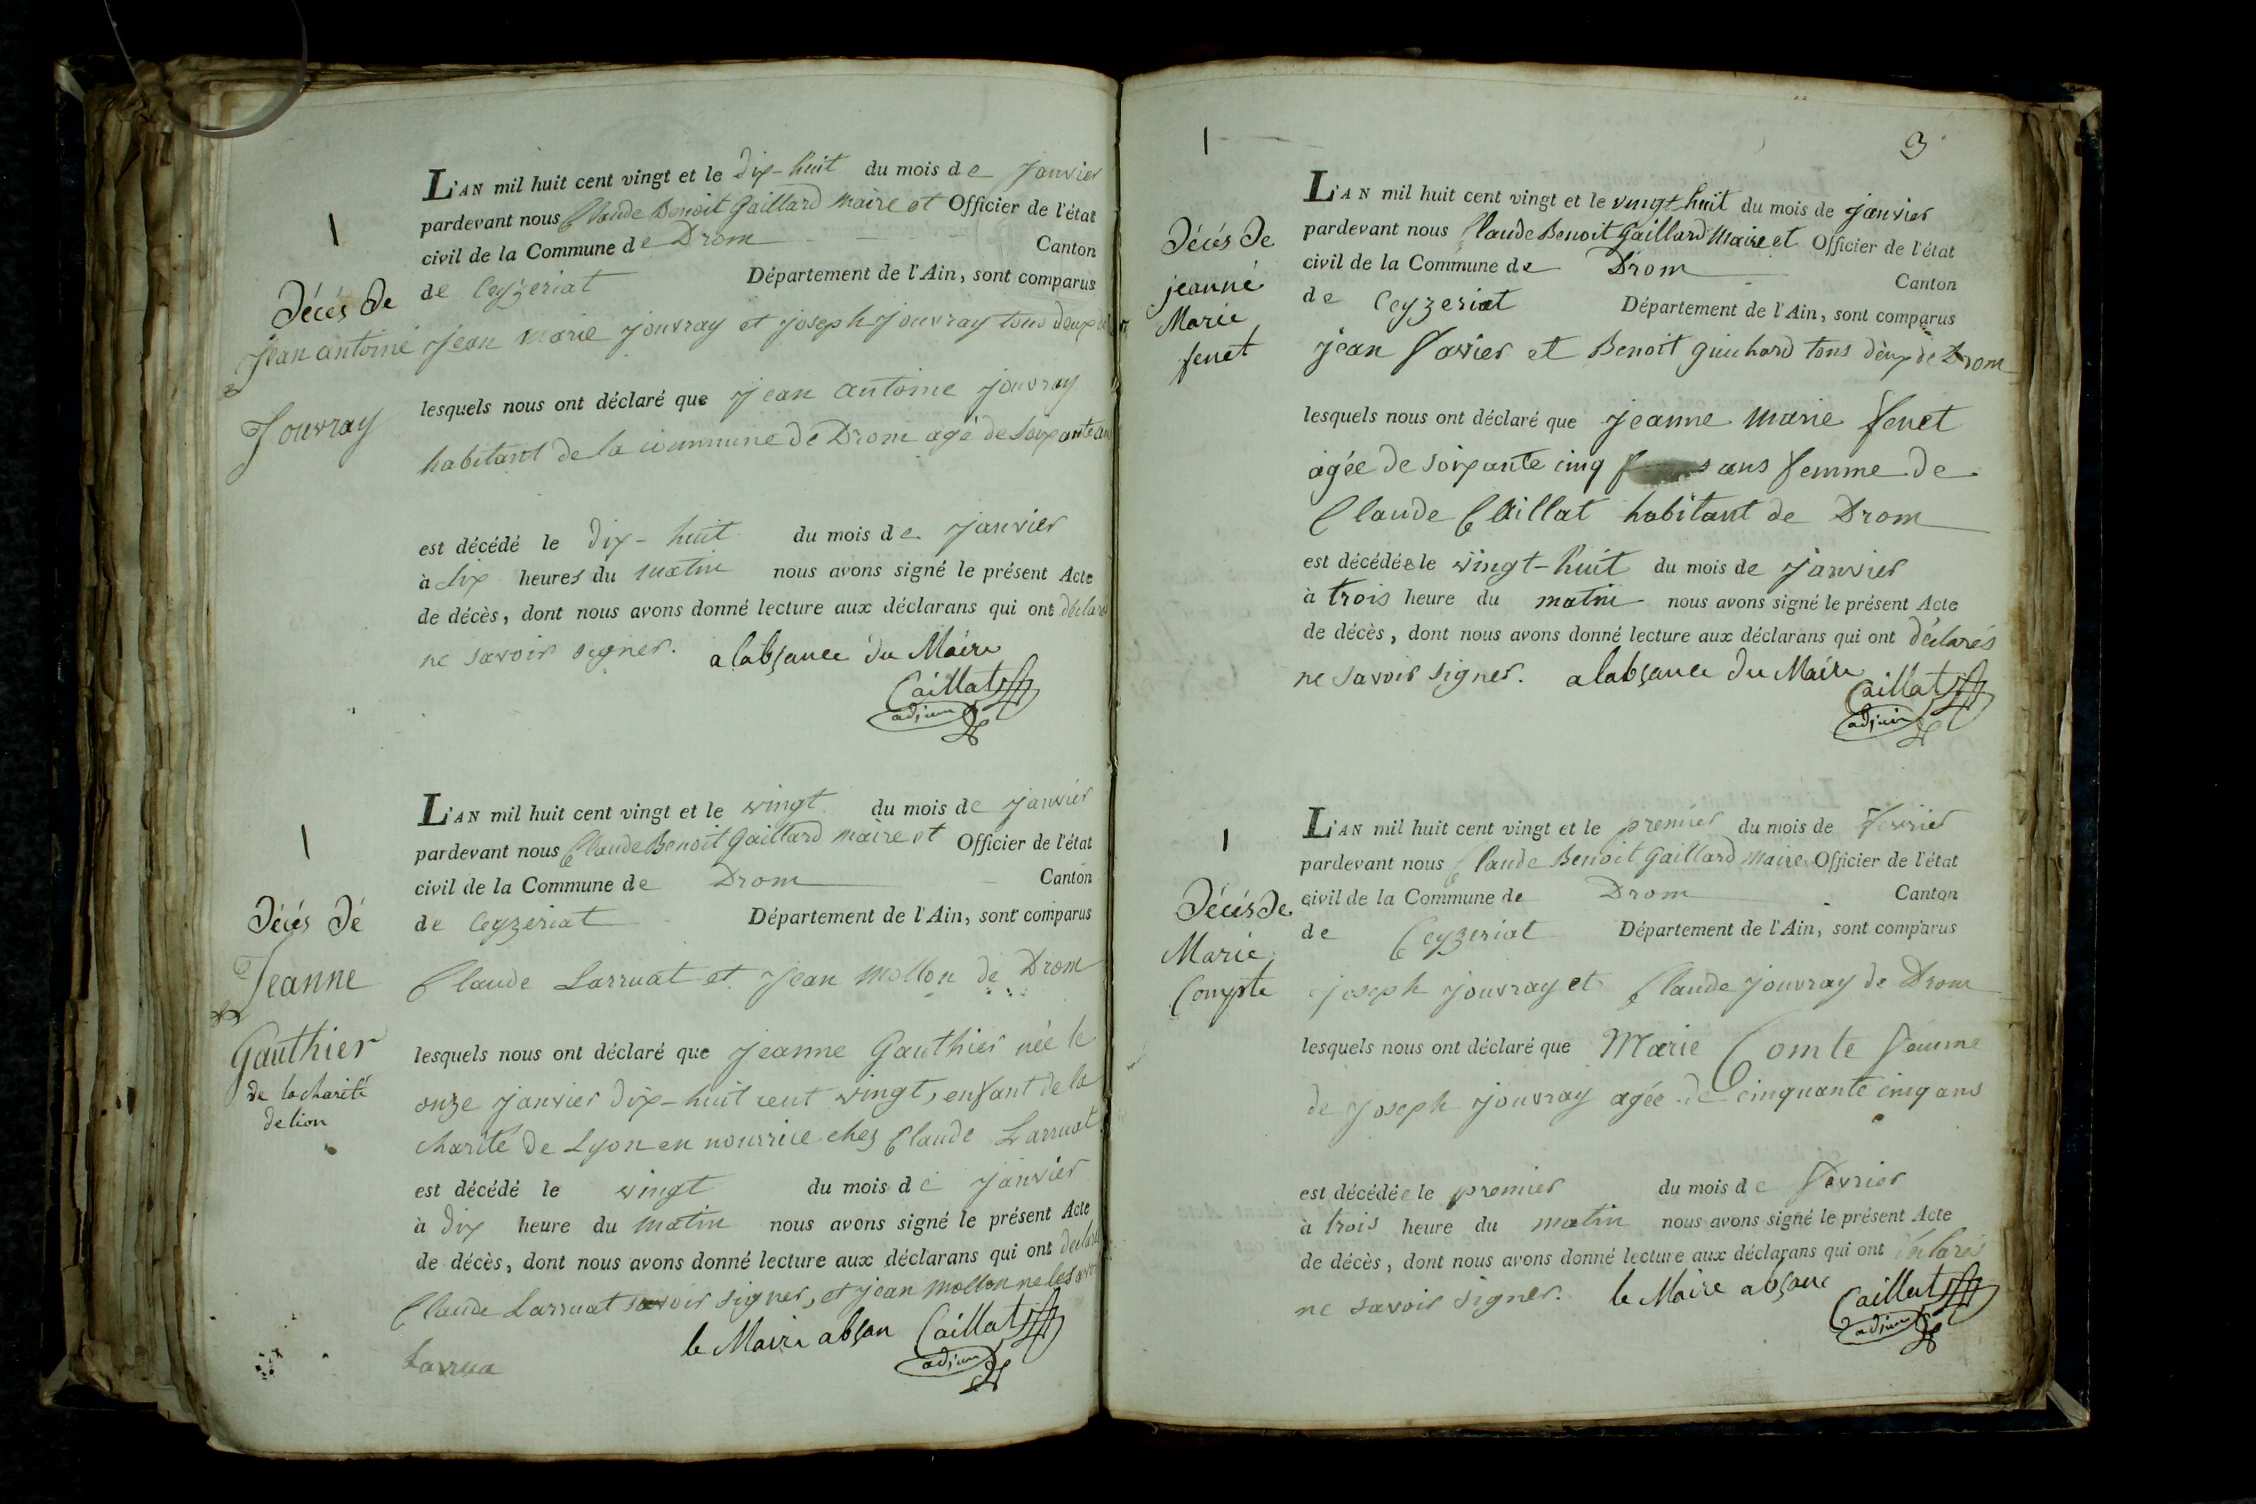 1
Décés De
Jean antoine
Jouvray
L'AN mil huit cent vingt et le dix-huit du mois de janvier
pardevant nous Claude Benoit Gaillard maire et Officier de l'état
civil de la Commune de Drom Canton
de Ceyzeriat Département de l'Ain, sont comparus
Jean marie jouvray et joseph jouvray tous deux
lesquels nous ont déclaré que jean antoine jouvray
habitant de la commune de Drom agé de soixante ans
est décédé le dix-huit du mois de janvier
à six heures du matin nous avons signé le présent Acte
de décès, dont nous avons donné lecture aux déclarans qui ont déclarés
ne savoir signer. a labsance du Maire
Caillat
adjoin
1
Décés Dé
Jeanne
Gauthier
de la charité
de lion
L'AN mil huit cent vingt et le vingt du mois de janvier
pardevant nous Claude Benoit Gaillard maire et Officier de l'état
civil de la Commune de Drom Canton
de Ceyzeriat Département de l'Ain, sont comparus
Claude Larruat et Jean Mollon de Drom
lesquels nous ont déclaré que jeanne Gauthier née le
onze janvier dix-huit cent vingt, enfant de la
charité de Lyon en nourrice chez Claude Larruat
est décédé le vingt du mois de janvier
à dix heure du matin nous avons signé le présent Acte
de décès, dont nous avons donné lecture aux déclarans qui ont déclaré
Claude Larruat savoir signer, et jean Mollon ne le savoir
le Maire absan Caillat
Larrua adjoin
1
3
Décés De
jeanne
Marie
fenet
L'AN mil huit cent vingt et le vingt-huit du mois de janvier
pardevant nous Claude Benoit Gaillard Maire et Officier de l'état
civil de la Commune de Drom Canton
de Ceyzeriat Département de l'Ain, sont comparus
jean Favier et Benoit guichard tous deux de Drom
lesquels nous ont déclaré que jeanne marie fenet
agée de soixante cinq ans femme de
Claude Caillat habitant de Drom
est décédée le vingt-huit du mois de janvier
à trois heure du matin nous avons signé le présent Acte
de décès, dont nous avons donné lecture aux déclarans qui ont déclarés
ne savoir signer. a labsance du Maire
Caillat
adjoin
1
Décés De
Marie
Compte
L'AN mil huit cent vingt et le premier du mois de fevrier
pardevant nous Claude Benoit Gaillard maire Officier de l'état
civil de la Commune de Drom Canton
de Ceyzeriat Département de l'Ain, sont comparus
joseph jouvray et Claude jouvray de Drom
lesquels nous ont déclaré que Marie Comte femme
de joseph jouvray agée de cinquante cinq ans
est décédée le premier du mois de fevrier
à trois heure du matin nous avons signé le présent Acte
de décès, dont nous avons donné lecture aux déclarans qui ont déclarés
ne savoir signer. le Maire absanc Caillat
adjoin